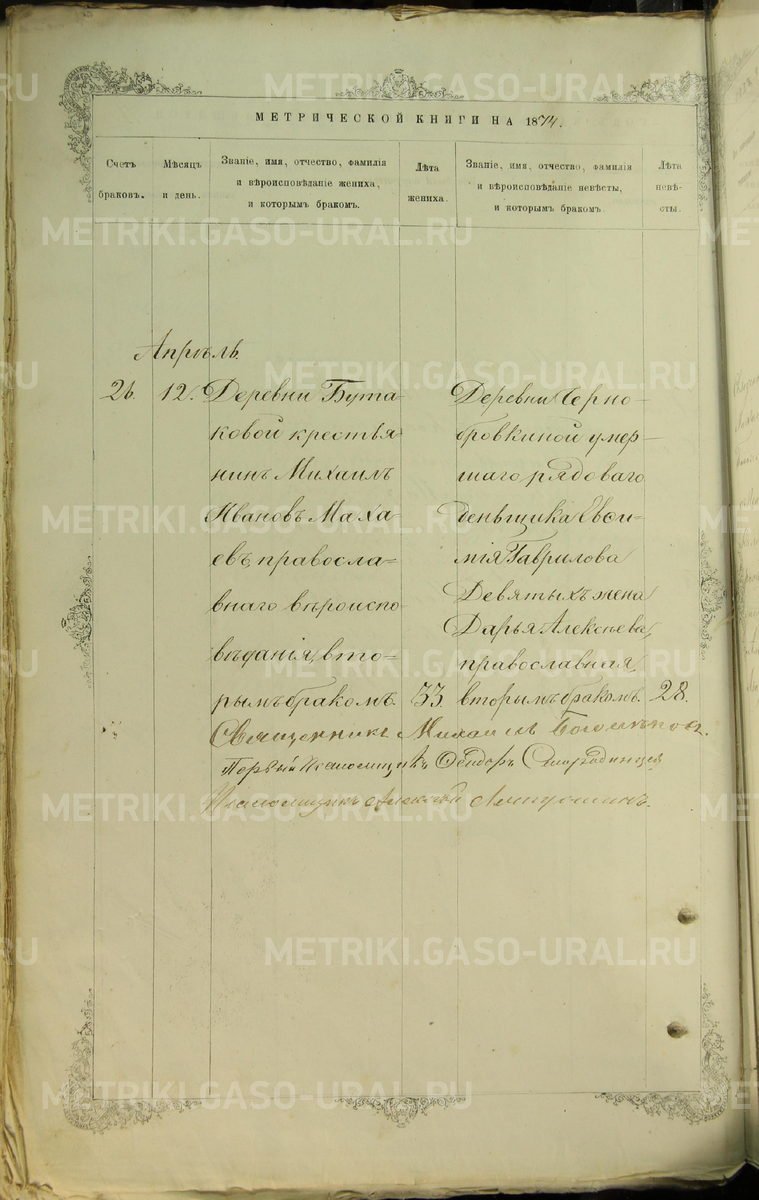 МЕТРИЧЕСКОЙ КНИГИ НА 1874.
Счетъ браковъ.
Мѣсяцъ и день.
Званіе, имя, отчество, фамилія
и вѣроисповѣданіе жениха,
и которымъ бракомъ.
Лѣта жениха.
Званіе, имя, отчество, фамилія
и вѣроисповѣданіе невѣсты,
и которымъ бракомъ.
Лѣта невѣсты.
Апрѣль
26. 12.
Деревни Бута-
ковой крестья
нинъ Михаилъ
Ивановъ Маха-
евъ, правосла-
внаго вѣроиспо
вѣданія, вто-
рымъ бракомъ. 33.
Деревни Черно-
бровкиной умер-
шаго рядоваго
деньщика Евси-
мія Гаврилова
Девятыхъ жена
Дарья Алексѣева,
православная,
вторымъ бракомъ. 28.
Священникъ Михаилъ
Первый Псаломщикъ Ѳеодоръ Смородинцев
Псаломщикъ Алексѣй
METRIKI.GASO-URAL.RU